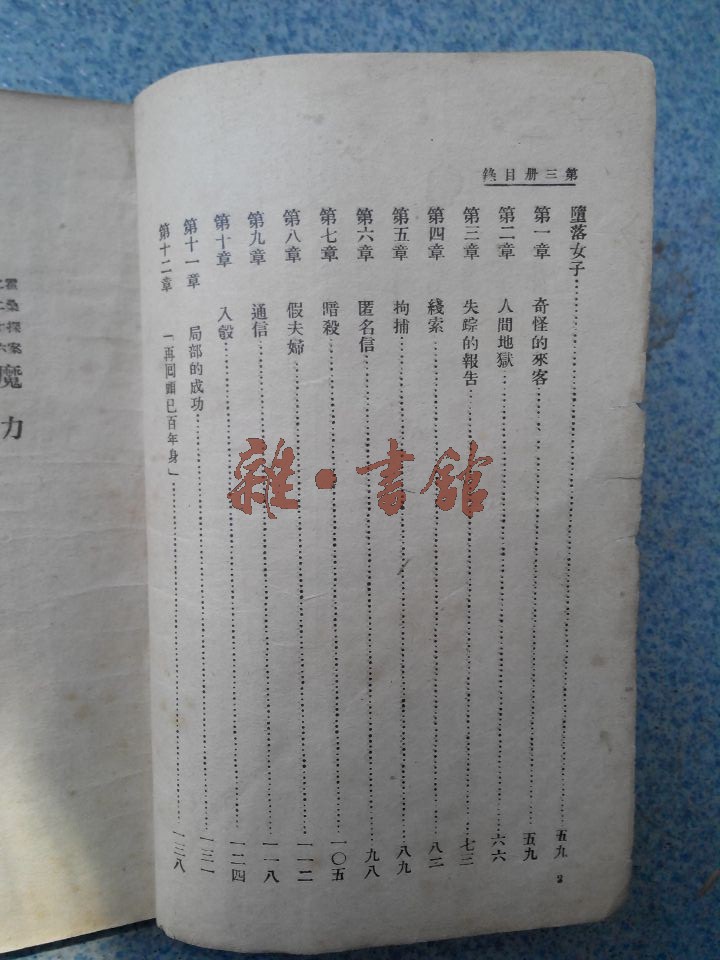 第三册目錄
墮落女子 五九
第一章 奇怪的來客 五九
第二章 人間地獄 六六
第三章 失踪的報告 七三
第四章 綫索 八二
第五章 拘捕 八九
第六章 匿名信 九八
第七章 暗殺 一〇五
第八章 假夫婦 一一二
第九章 通信 一一八
第十章 入彀 一二四
第十一章 局部的成功 一三一
第十二章 「再回頭已百年身」 一三八
2
雜·書館
魔力